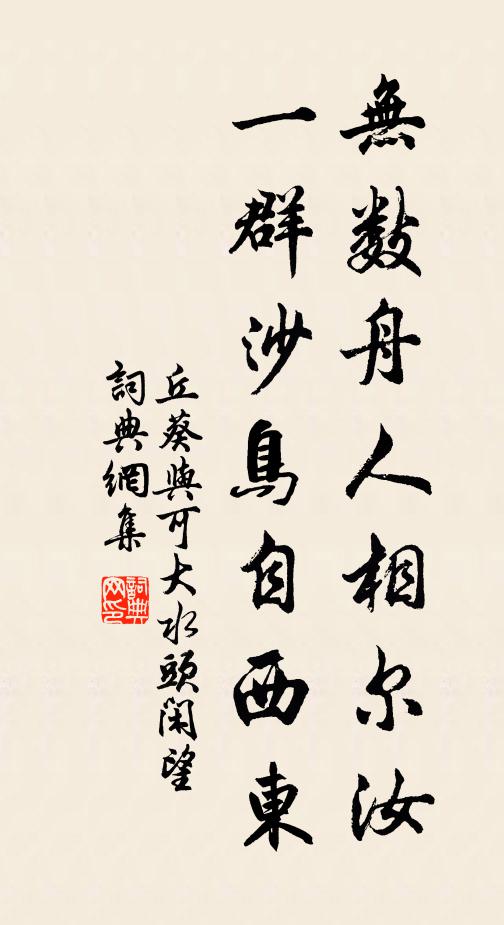 無數舟人相尔汝
一群沙鳥自西東
丘葵與可大水頭閑望
詞典網集
詞典網印